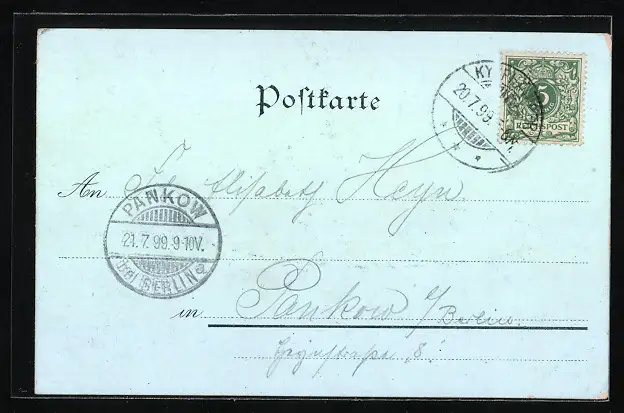 Postkarte
20.7.99.
5
REICHSPOST
An Frl. Elisabeth Heyn
PANKOW
21.7.99.9-10V.
bei BERLIN a
in Pankow b/Berlin.
8